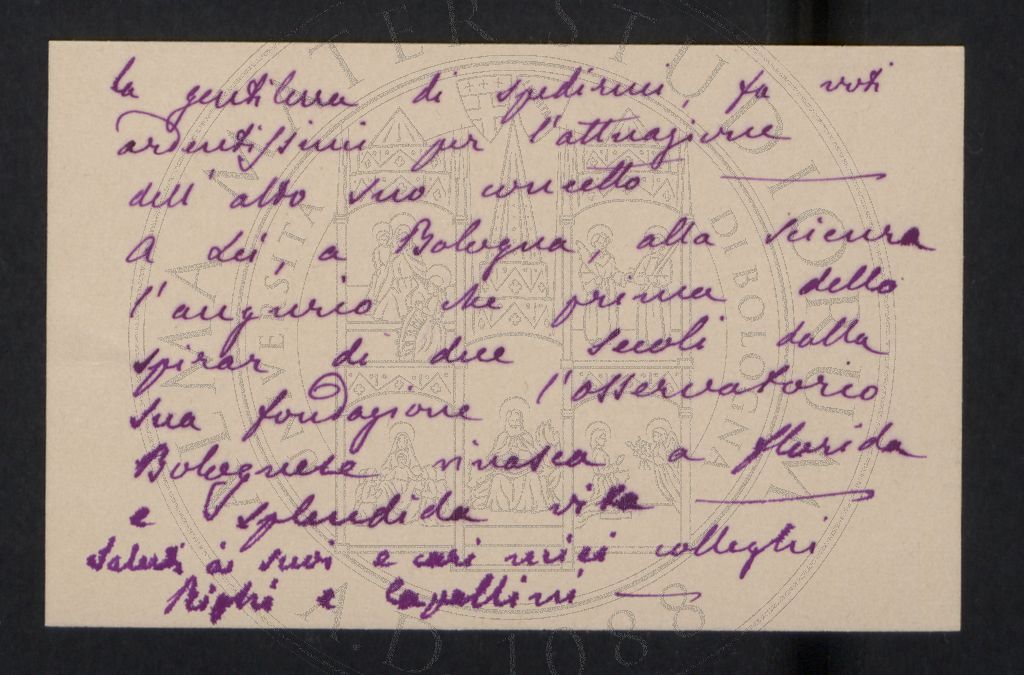 la gentilezza di spedirmi, fa voti
ardentissimi per l'attuazione
dell'alto suo concetto
A Lei, a Bologna, alla scienza
l'augurio che prima dello
spirar di due secoli dalla
sua fondazione l'osservatorio
Bolognese rinasca a florida
e splendida vita
Saluti ai suoi e cari miei colleghi
Righi e Capellini
ALMA MATER STUDIORUM
UNIVERSITÀ DI BOLOGNA
A.D. 1088